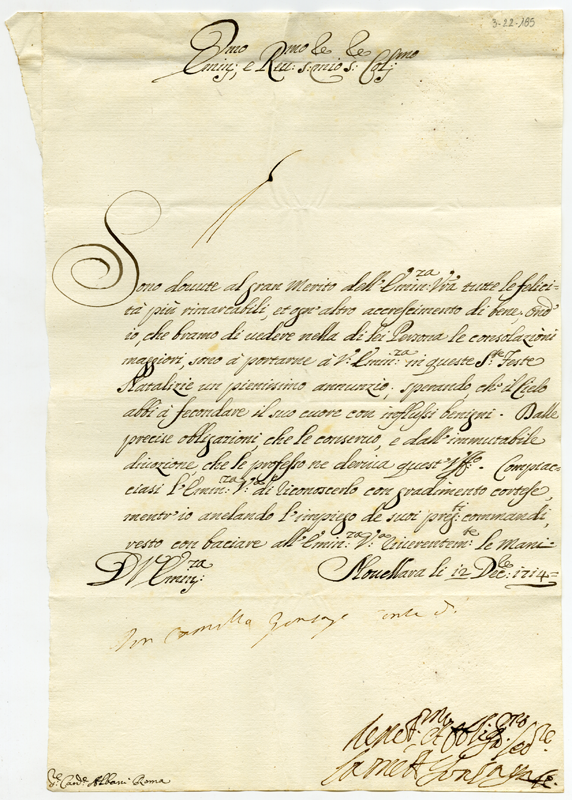 3-22-185
Emin:mo, e Reu:mo S:r mio S:r Col:mo
Sono douute al gran Merito dell'Emin:za V'ra tutte le felici=
tà più rimarcabili, et ogn'altro accrescimento di bene, ond'
io, che bramo di uedere nella di lei Persona le consolazioni
maggiori, sono à portarne à V: Emin:za in queste S:te Feste
Natalizie un pienissimo annunzio, sperando, ch'il Cielo
abbi à fecondare il suo cuore con influssi benigni. Dalle
precise obligazioni, che le conseruo, e dall'immutabile
diuozione, che le professo ne deriua quest' Compiac=
ciasi l'Emin:za V: di riconoscerlo con gradimento cortese,
mentr'io anelando l'impiego de suoi preg:ti commandi,
resto con baciare all'Emin:za V: riuerentem:te le Mani
D V Emin:za
Nouellara li 12 Dec:bre 1714=
Don Camillo Gonzaga
deuot:mo et oblig: Ser:re
Gonzaga
S:r Card: Albani Roma